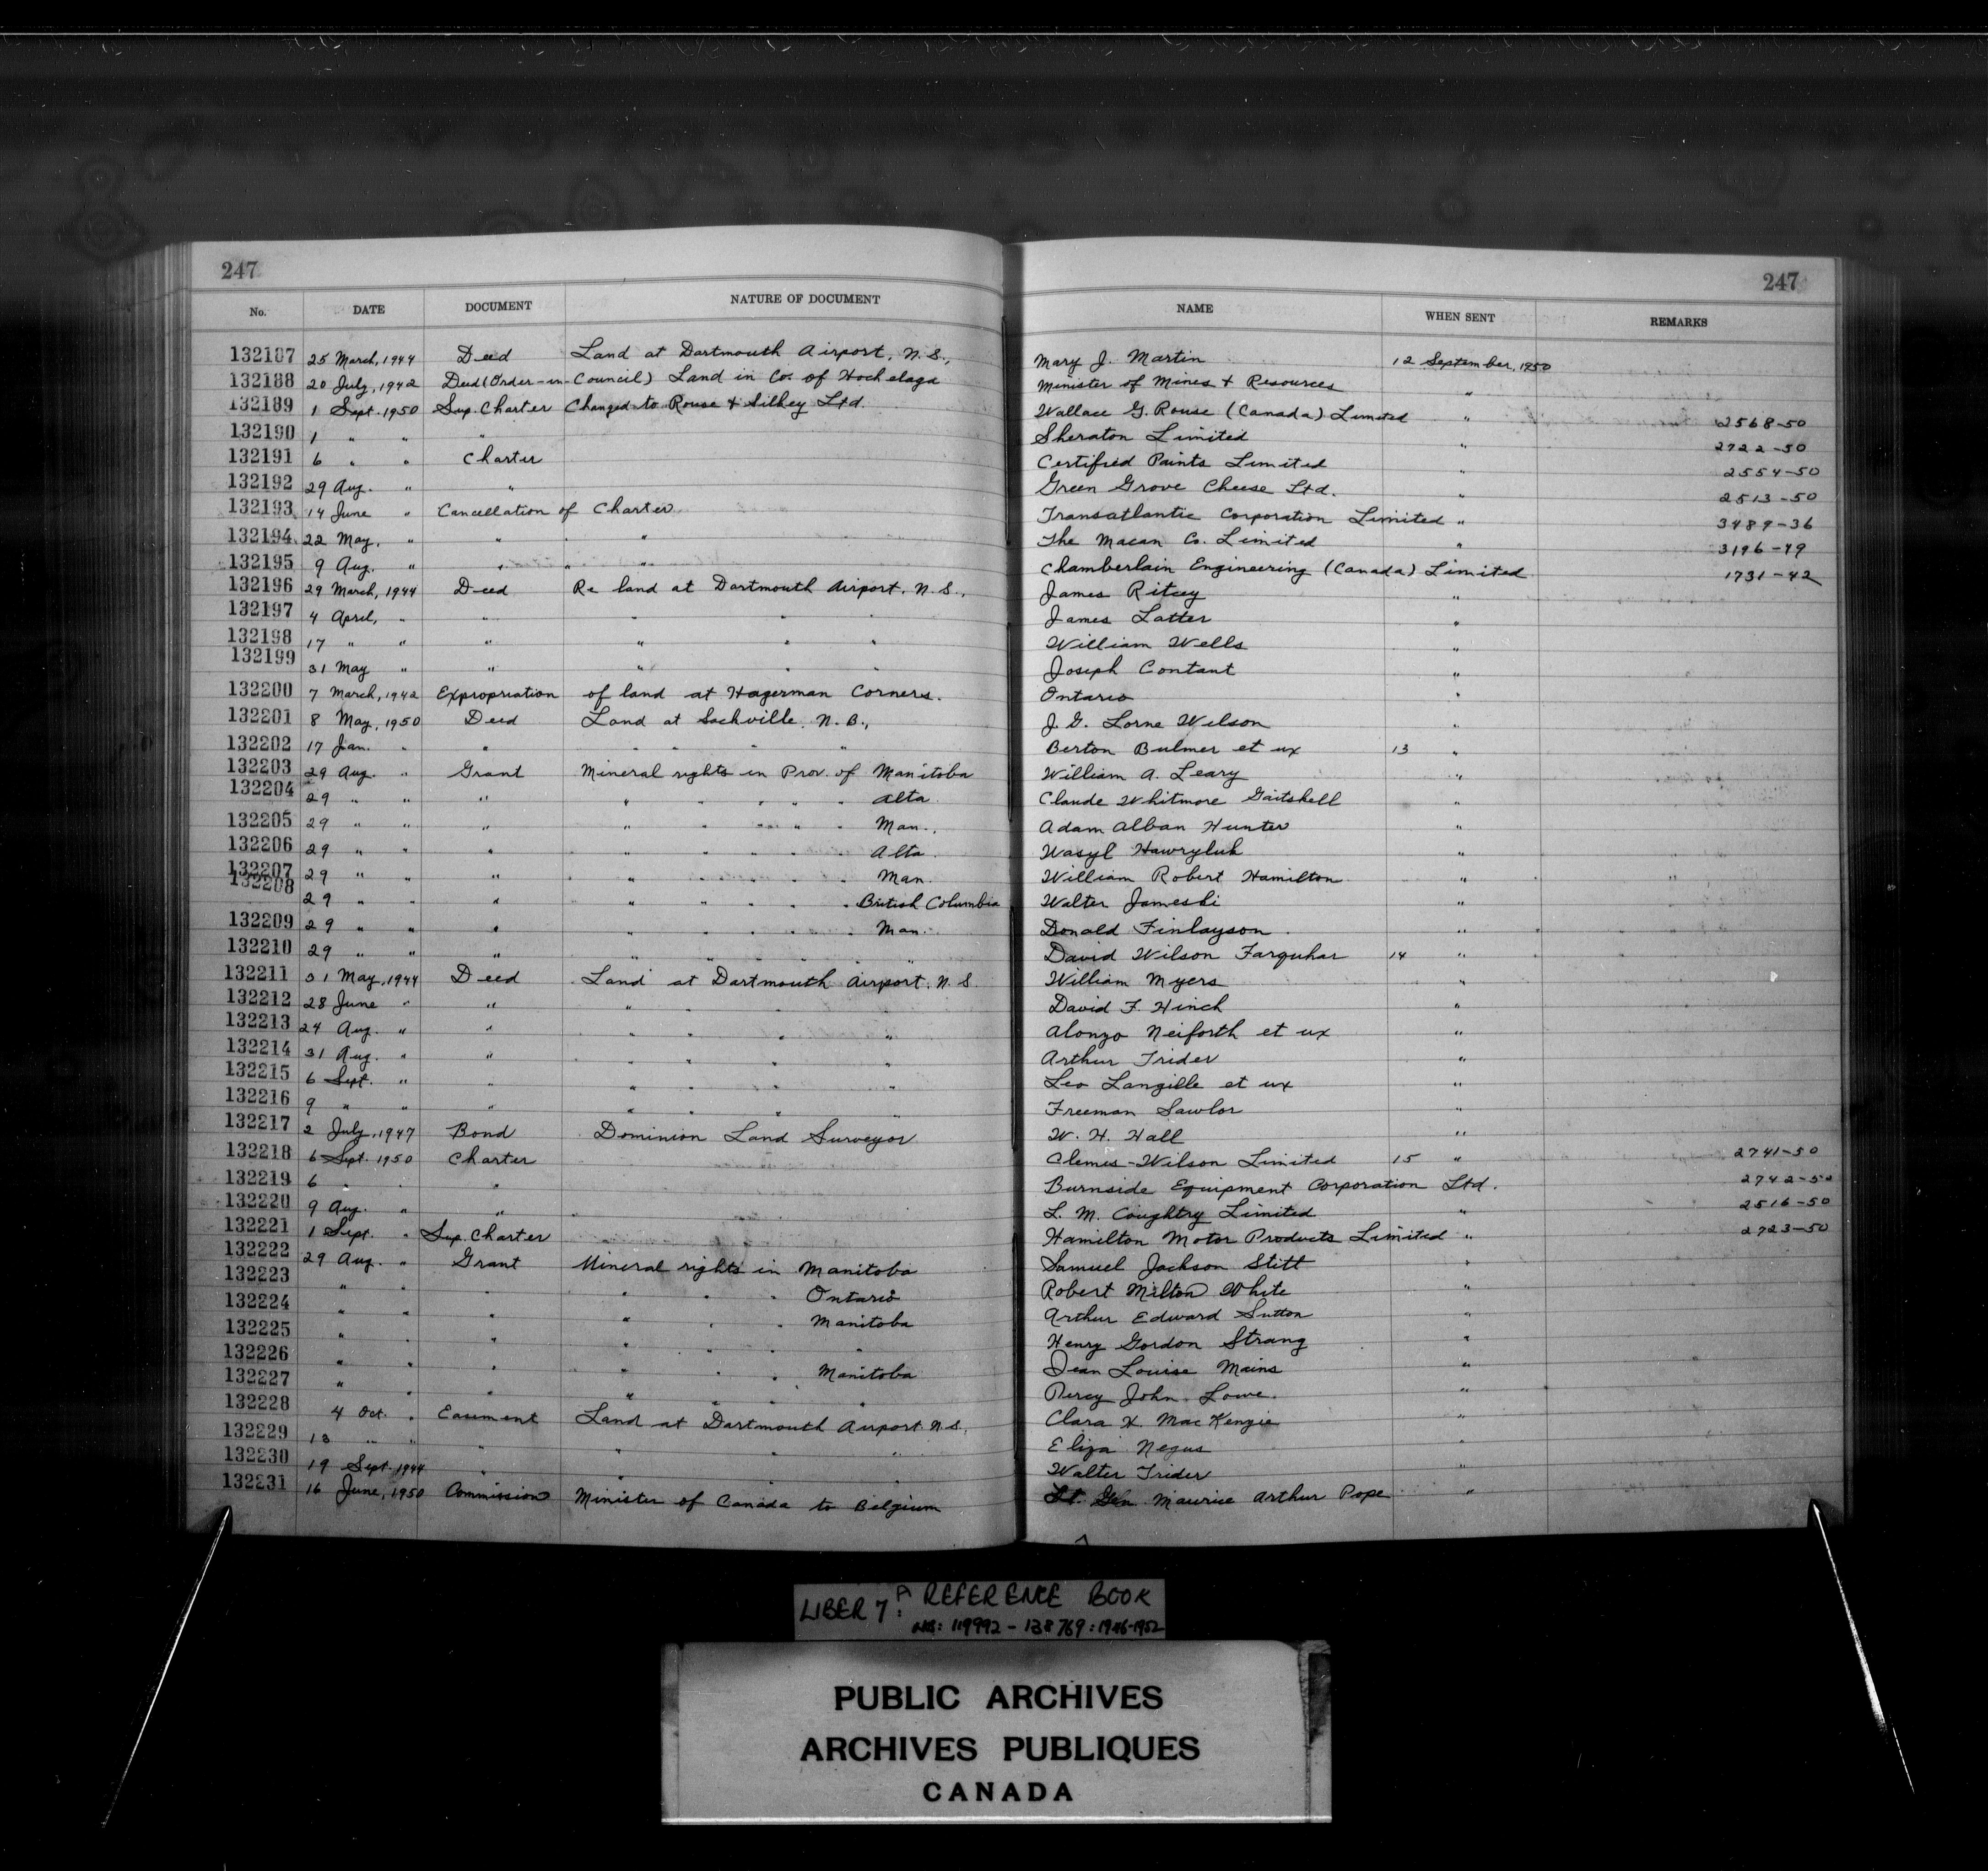 247
247
No. DATE DOCUMENT NATURE OF DOCUMENT NAME WHEN SENT REMARKS
132187 25 March, 1944 Deed Land at Dartmouth Airport, N.S., Mary J. Martin 12 September, 1950
132188 20 July, 1942 Deed (Order-in-Council) Land in Co. of Hochelaga Minister of Mines & Resources "
132189 1 Sept. 1950 Sup. Charter Changed to Rouse & Silkey Ltd. Wallace G. Rouse (Canada) Limited " 2568-50
132190 1 " " " Sheraton Limited " 2722-50
132191 6 " " Charter Certified Paints Limited " 2554-50
132192 29 Aug. " " Green Grove Cheese Ltd. " 2513-50
132193 14 June " Cancellation of Charter. Transatlantic Corporation Limited " 3489-36
132194 22 May, " " " " The Macan Co. Limited " 3196-49
132195 9 Aug. " " " " Chamberlain Engineering (Canada) Limited 1731-42
132196 29 March, 1944 Deed Re land at Dartmouth Airport, N.S., James Ritcey "
132197 4 April, " " " " " James Latter "
132198 17 " " " " " " William Wells "
132199 31 May " " " " " Joseph Contant "
132200 7 March, 1942 Expropriation of land at Hagerman Corners. Ontario "
132201 8 May, 1950 Deed Land at Sackville, N.B., J. G. Lorne Wilson "
132202 17 Jan. " " " " " " Berton Bulmer et ux 13 "
132203 29 Aug. " Grant Mineral rights in Prov. of Manitoba William A. Leary "
132204 29 " " " " " " " " Alta. Claude Whitmore Gaitshell "
132205 29 " " " " " " " " Man., Adam Alban Hunter "
132206 29 " " " " " " " " Alta. Wasyl Hawryluk "
132207 29 " " " " " " " " Man. William Robert Hamilton "
132208 29 " " " " " " " " British Columbia Walter Jameski "
132209 29 " " " " " " " " Man. Donald Finlayson "
132210 29 " " " " " " " " " David Wilson Farquhar 14 "
132211 31 May, 1944 Deed Land at Dartmouth Airport, N.S. William Myers "
132212 28 June " " " " " " David F. Hinch "
132213 24 Aug. " " " " " " Alonzo Neiforth et ux "
132214 31 Aug. " " " " " " Arthur Trider "
132215 6 Sept. " " " " " " Leo Langille et ux "
132216 9 " " " " " " " Freeman Sawlor "
132217 2 July, 1947 Bond Dominion Land Surveyor W. H. Hall "
132218 6 Sept. 1950 Charter Clemis-Wilson Limited 15 " 2741-50
132219 6 " " " Burnside Equipment Corporation Ltd. 2742-50
132220 9 Aug. " " L. M. Coughtry Limited " 2516-50
132221 1 Sept. " Sup. Charter Hamilton Motor Products Limited " 2723-50
132222 29 Aug. " Grant Mineral rights in Manitoba Samuel Jackson Stitt "
132223 " " " " " " Ontario Robert Milton White "
132224 " " " " " " Manitoba Arthur Edward Sutton "
132225 " " " " " " " Henry Gordon Strang "
132226 " " " " " " Manitoba Jean Louise Mains "
132227 " " " " " " " Percy John Lowe. "
132228 4 Oct. " Easement Land at Dartmouth Airport N.S. Clara H MacKenzie "
132229 13 " " " " " " Eliza Negus "
132230 19 Sept. 1944 " " " " Walter Trider "
132231 16 June, 1950 Commission Minister of Canada to Belgium Lt. Gen. Maurice Arthur Pope "
LIBER 7A: REFERENCE BOOK
NOS: 119992 - 138769: 1946-1952
PUBLIC ARCHIVES
ARCHIVES PUBLIQUES
CANADA